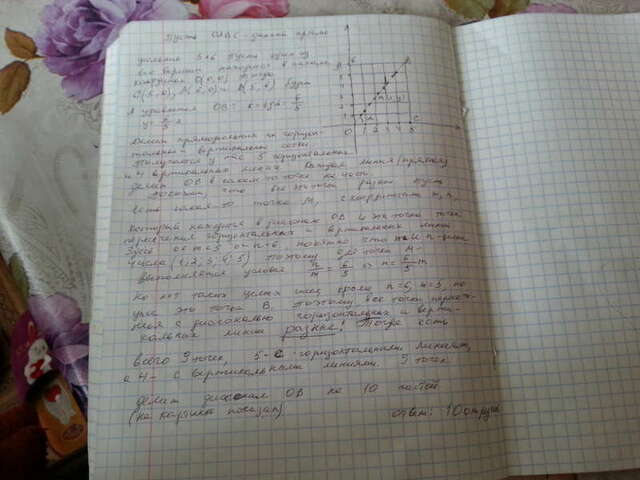 Пусть OABC данный прямо
уголник 5×6 Пусть один из
его вершин находится в начале
координат O(0,0) Тогда
C(5,0), A(0,6) B(5,6) будут
А уравнения OB: k=tgα=6/5
y=6/5 x
Делим прямоугольник на горизон-
тальные и вертикальные
Получается у нас 5 горизонтальных
и 4 вертикальных линий. Каждая линия (прямая)
делит OB в каком то точке на части.
что все эти точки разные Пусть
есть такая то точка M, с координатами m, n,
который находится в диагонале OB и эта точка точка
пересечения горизонтальных и вертикальных линий
Здесь 0<m<5 0<n<6, понятно что m и n целые
числа (1, 2, 3, 4, 5) Поэтому для точки M
выполняется условия n/m=6/5 n=6/5 m
Но нет таких целых чисел кроме n=6, m=5, но
уже это точка B. Поэтому все точки перасе-
ния с диагональю горизонтальных и верти-
кальных линий разные! Тогда есть
всего 9 точек, 5-с горизонтальными линиями,
а 4- с вертикальными линиями. 9 точек
делит диагонал OB на 10 частей
(на картинке показан)
ответ: 10
O 1 2 3 4 5 C